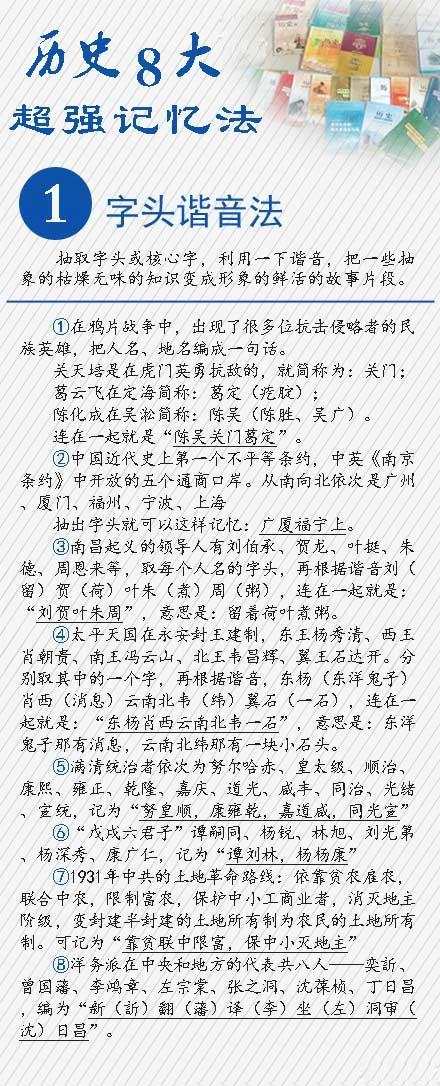 历史8大
超强记忆法
1 字头谐音法
抽取字头或核心字，利用一下谐音，把一些抽
象的枯燥无味的知识变成形象的鲜活的故事片段。
①在鸦片战争中，出现了很多位抗击侵略者的民
族英雄，把人名、地名编成一句话。
关天培是在虎门英勇抗敌的，就简称为：关门；
葛云飞在定海简称：葛定（疙腚）；
陈化成在吴淞简称：陈吴（陈胜、吴广）。
连在一起就是“陈吴关门葛定”。
②中国近代史上第一个不平等条约，中英《南京
条约》中开放的五个通商口岸。从南向北依次是广州
、厦门、福州、宁波、上海
抽出字头就可以这样记忆：广厦福宁上。
③南昌起义的领导人有刘伯承、贺龙、叶挺、朱
德、周恩来等，取每个人名的字头，再根据谐音刘（
留）贺（荷）叶朱（煮）周（粥），连在一起就是：
“刘贺叶朱周”，意思是：留着荷叶煮粥。
④太平天国在永安封王建制，东王杨秀清、西王
肖朝贵、南王冯云山、北王韦昌辉、翼王石达开。分
别取其中的一个字，再根据谐音，东杨（东洋鬼子）
肖西（消息）云南北韦（纬）翼石（一石），连在一
起就是：“东杨肖西云南北韦一石”，意思是：东洋
鬼子那有消息，云南北纬那有一块小石头。
⑤满清统治者依次为努尔哈赤、皇太极、顺治、
康熙、雍正、乾隆、嘉庆、道光、咸丰、同治、光绪
、宣统，记为“努皇顺，康雍乾，嘉道咸，同光宣”
⑥“戊戌六君子”谭嗣同、杨锐、林旭、刘光第
、杨深秀、康广仁，记为“谭刘林，杨杨康”
⑦1931年中共的土地革命路线：依靠贫农雇农，
联合中农，限制富农，保护中小工商业者，消灭地主
阶级，变封建半封建的土地所有制为农民的土地所有
制。可记为“靠贫联中限富，保中小灭地主”
⑧洋务派在中央和地方的代表共八人——奕訢、
曾国藩、李鸿章、左宗棠、张之洞、沈葆桢、丁日昌
，编为“新（訢）翻（藩）译（李）坐（左）洞审（
沈）日昌”。